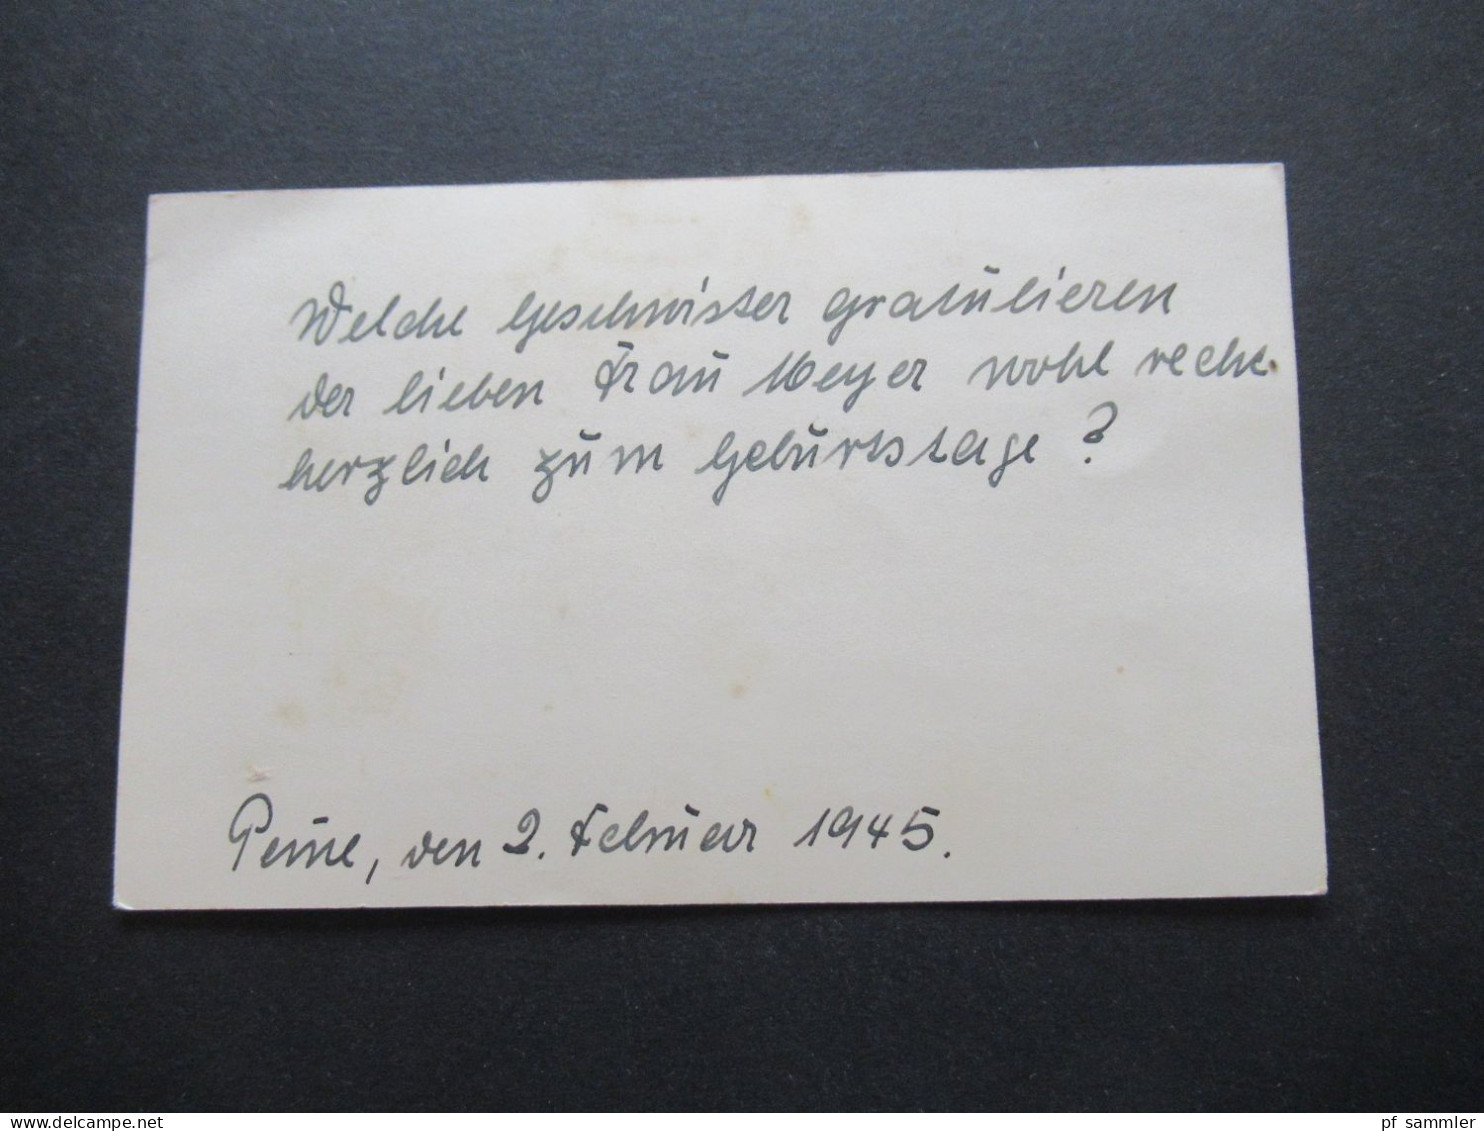 Welche Geschwister gratulieren
der lieben Frau Meyer wohl recht
herzlich zum Geburtstage?
Peine, den 2. Februar 1945.
delcampe.net
pf_sammler